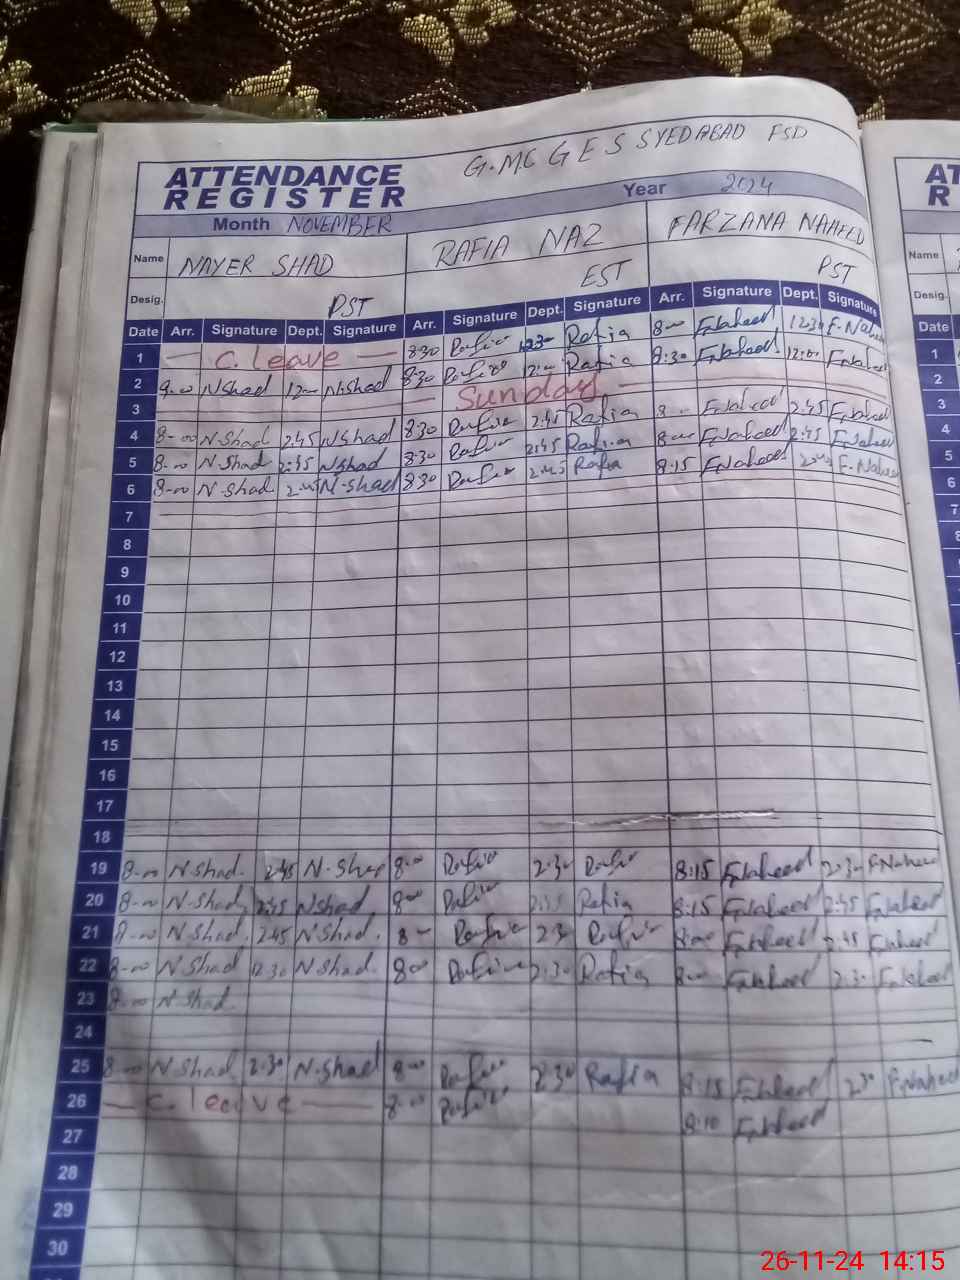 G.MC G E S SYEDABAD FSD
ATTENDANCE
REGISTER
Year 2024
Month NOVEMBER
Name NAYER SHAD RAFIA NAZ FARZANA NAHEED
Desig. PST EST PST
Date Arr. Signature Dept. Signature Arr. Signature Dept. Signature Arr. Signature Dept. Signature
1 C. leave 8:30 Rafia 12:30 Rafia 8:00 F.Naheed 12:30 F.Naheed
2 9:00 N.Shad 12:00 N.Shad 8:30 Rafia 12:00 Rafia 8:30 F.Naheed 12:00 F.Naheed
3 Sunday
4 8:00 N.Shad 2:45 N.Shad 8:30 Rafia 2:45 Rafia 8:00 F.Naheed 2:45 F.Naheed
5 8:00 N.Shad 2:45 N.Shad 8:30 Rafia 2:45 Rafia 8:00 F.Naheed 2:45 F.Naheed
6 8:00 N.Shad 2:45 N.Shad 8:30 Rafia 2:45 Rafia 8:15 F.Naheed F.Naheed
7
8
9
10
11
12
13
14
15
16
17
18
19 8:00 N.Shad 2:45 N.Shad 8:00 Rafia 2:30 Rafia 8:15 F.Naheed 2:30 F.Naheed
20 8:00 N.Shad 2:45 N.Shad 8:00 Rafia Rafia 8:15 F.Naheed 2:45 F.Naheed
21 8:00 N.Shad 2:45 N.Shad 8 Rafia 2:3 Rafia 8:00 F.Naheed 2:45 F.Naheed
22 8:00 N.Shad 12:30 N.Shad 8:00 Rafia 2:30 Rafia 8:00 F.Naheed 2:30 F.Naheed
23 8:00 N.Shad
24
25 8:00 N.Shad 2:30 N.Shad 8:00 Rafia 2:30 Rafia 8:15 F.Naheed 2:30 F.Naheed
26 C. leave 8:00 Rafia 8:10 F.Naheed
27
28
29
30
AT
R
Name
Desig.
Date
1
2
3
4
5
6
7
26-11-24 14:15